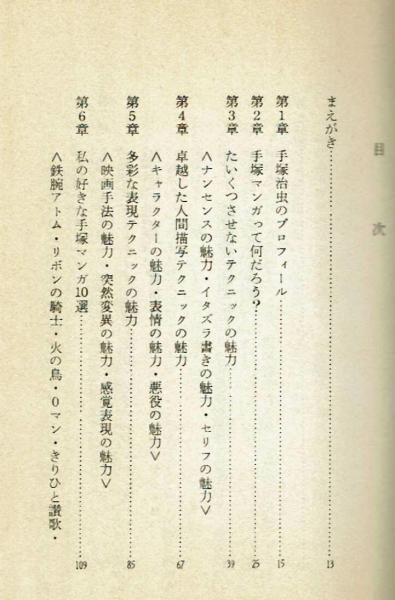 目次
まえがき……………………13
第1章　手塚治虫のプロフィール……………………15
第2章　手塚マンガって何だろう?……………………25
第3章　たいくつさせないテクニックの魅力……………………39
＜ナンセンスの魅力・イタズラ書きの魅力・セリフの魅力＞
第4章　卓越した人間描写テクニックの魅力……………………67
＜キャラクターの魅力・表情の魅力・悪役の魅力＞
第5章　多彩な表現テクニックの魅力……………………85
＜映画手法の魅力・突然変異の魅力・感覚表現の魅力＞
第6章　私の好きな手塚マンガ10選……………………109
＜鉄腕アトム・リボンの騎士・火の鳥・0マン・きりひと讃歌・